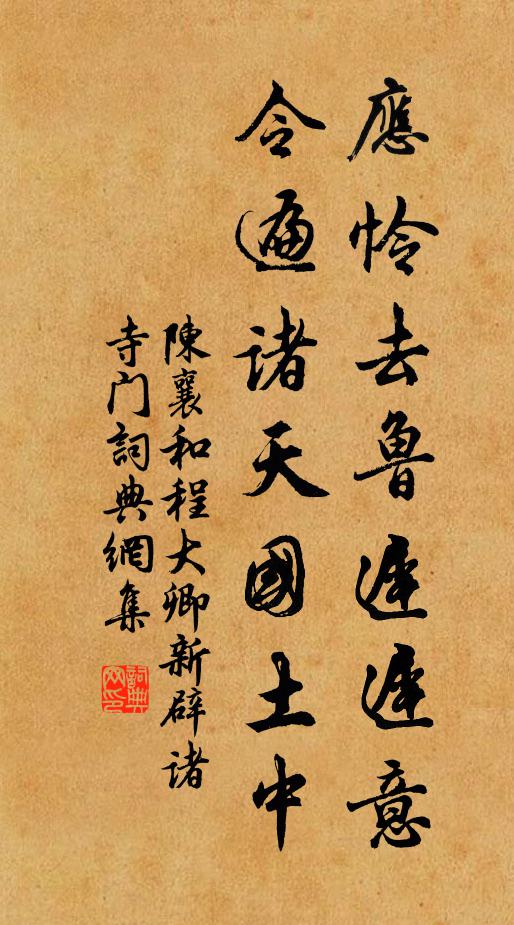 應怜去魯遲遲意
令遍諸天國土中
陳襄和程大卿新辟諸
寺门詞典網集
詞典
网印